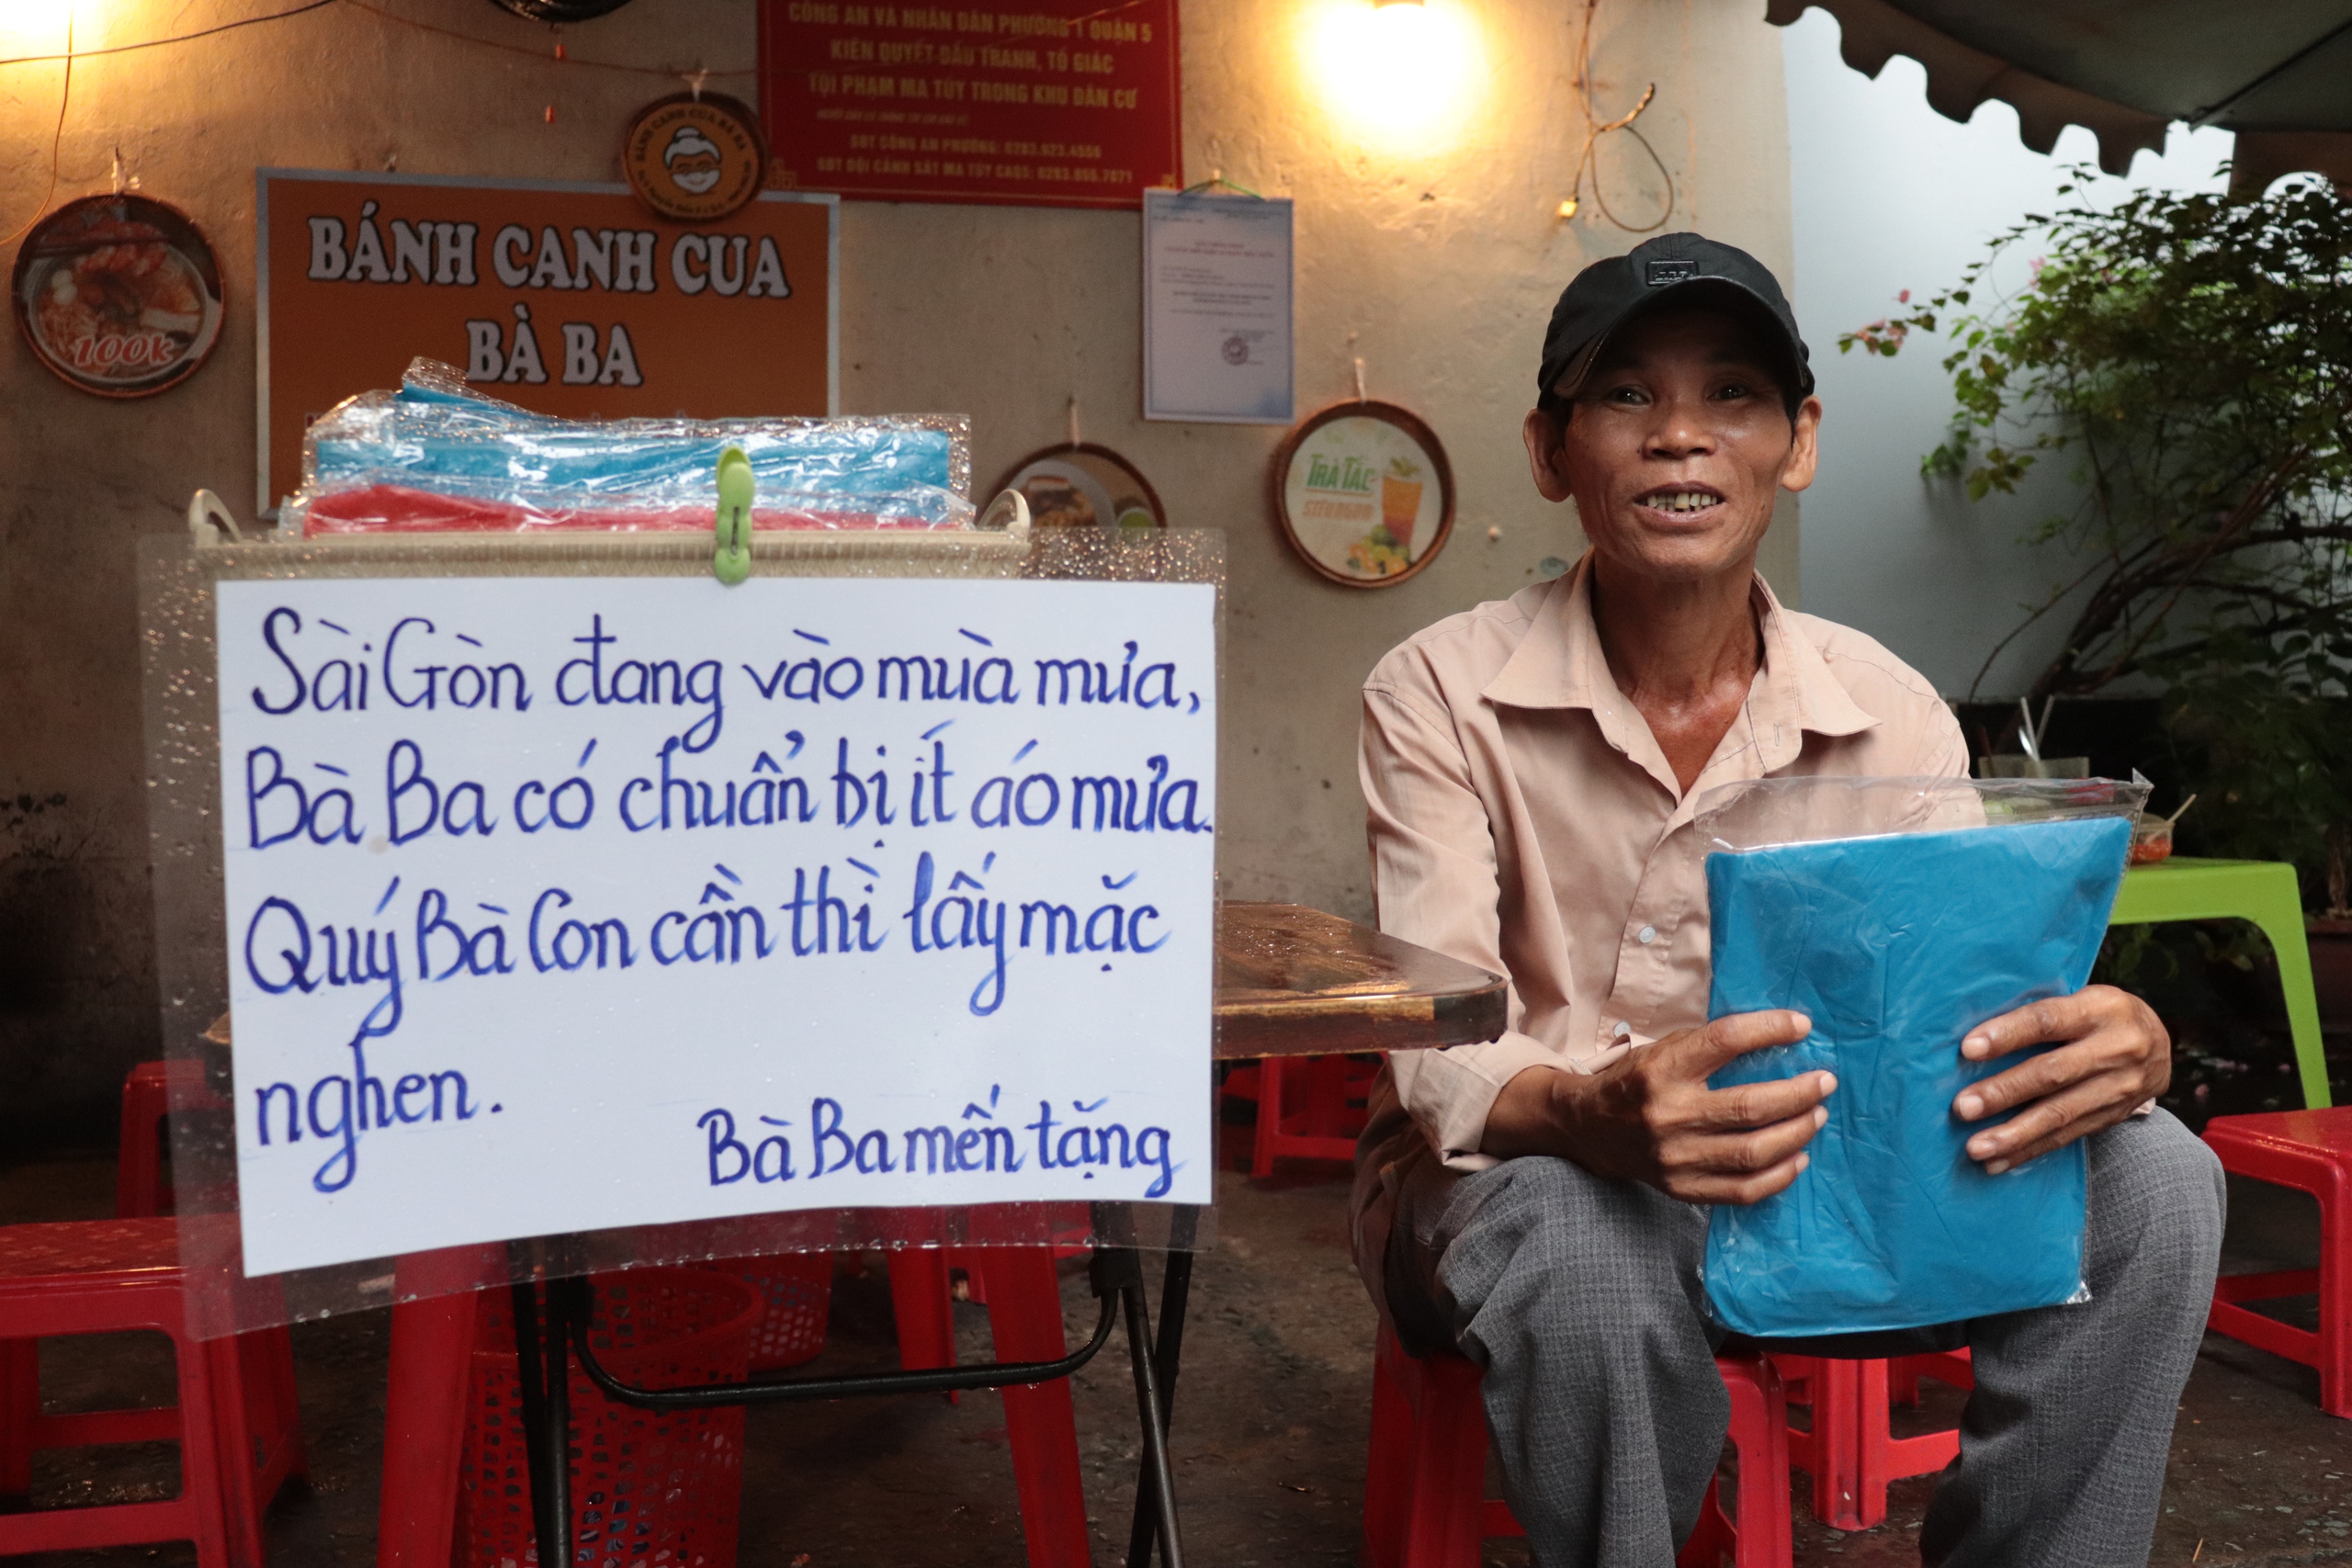 CÔNG AN VÀ NHÂN DÂN PHƯỜNG 1 QUẬN 5
KIÊN QUYẾT ĐẤU TRANH, TỐ GIÁC
TỘI PHẠM MA TÚY TRONG KHU DÂN CƯ
SĐT CÔNG AN PHƯỜNG: 0283.923.4556
SĐT ĐỘI CẢNH SÁT MA TÚY CAQ5: 0283.855.7871
BÁNH CANH CUA BÀ BA
BÁNH CANH CUA
BÀ BA
100k
TRÀ TẮC
Sài Gòn đang vào mùa mưa,
Bà Ba có chuẩn bị ít áo mưa.
Quý Bà Con cần thì lấy mặc
nghen.
Bà Ba mến tặng